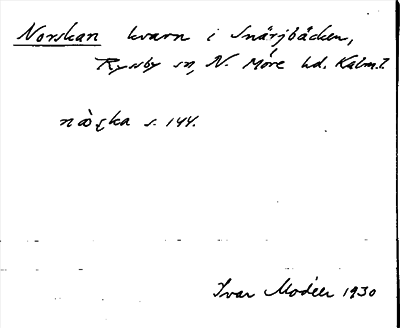 Norskan kvarn i Snärjbäcken,
Ryssby sn, N. Möre hd. Kalm. l.
s. 144.
Ivar Modéer 1930